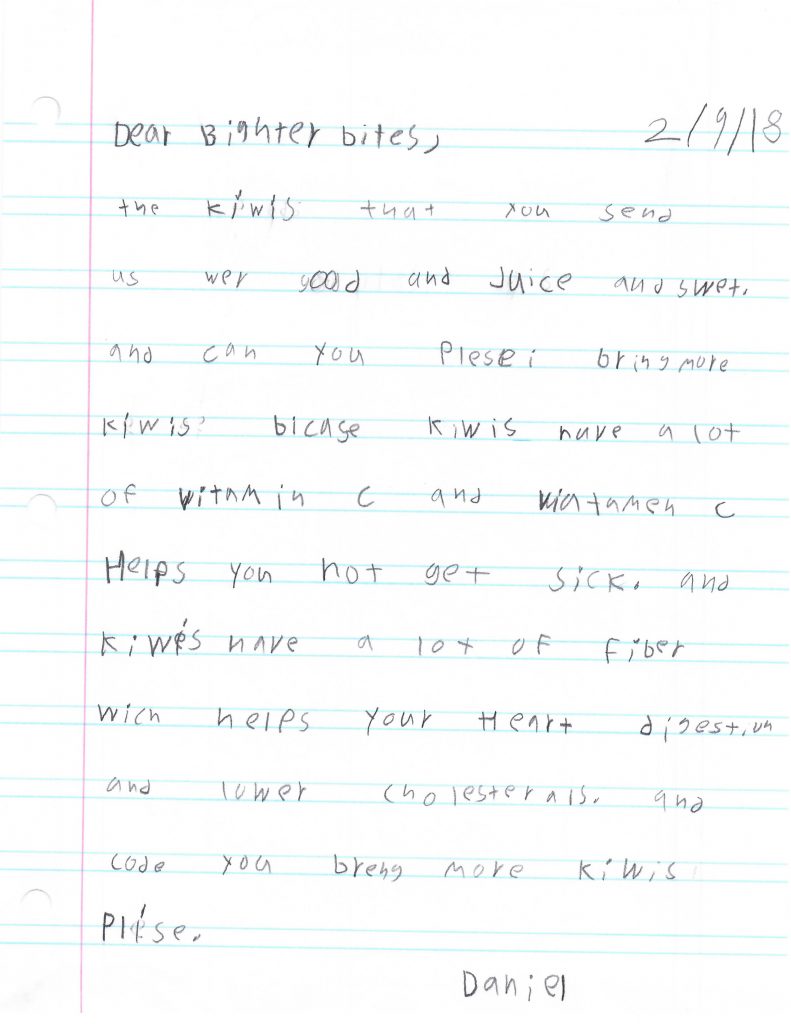 Dear Bighter bites, 2/9/18
the kiwis that you send
us wer good and Juice and swet.
and can you Plese bring more
kiwis bicase kiwis have a lot
of vitamin C and viatamen C
Helps you not get sick. and
kiwis have a lot of Fiber
wich helps your Heart digestiun
and lower cholesterals. and
code you breng more kiwis
Plese.
Daniel